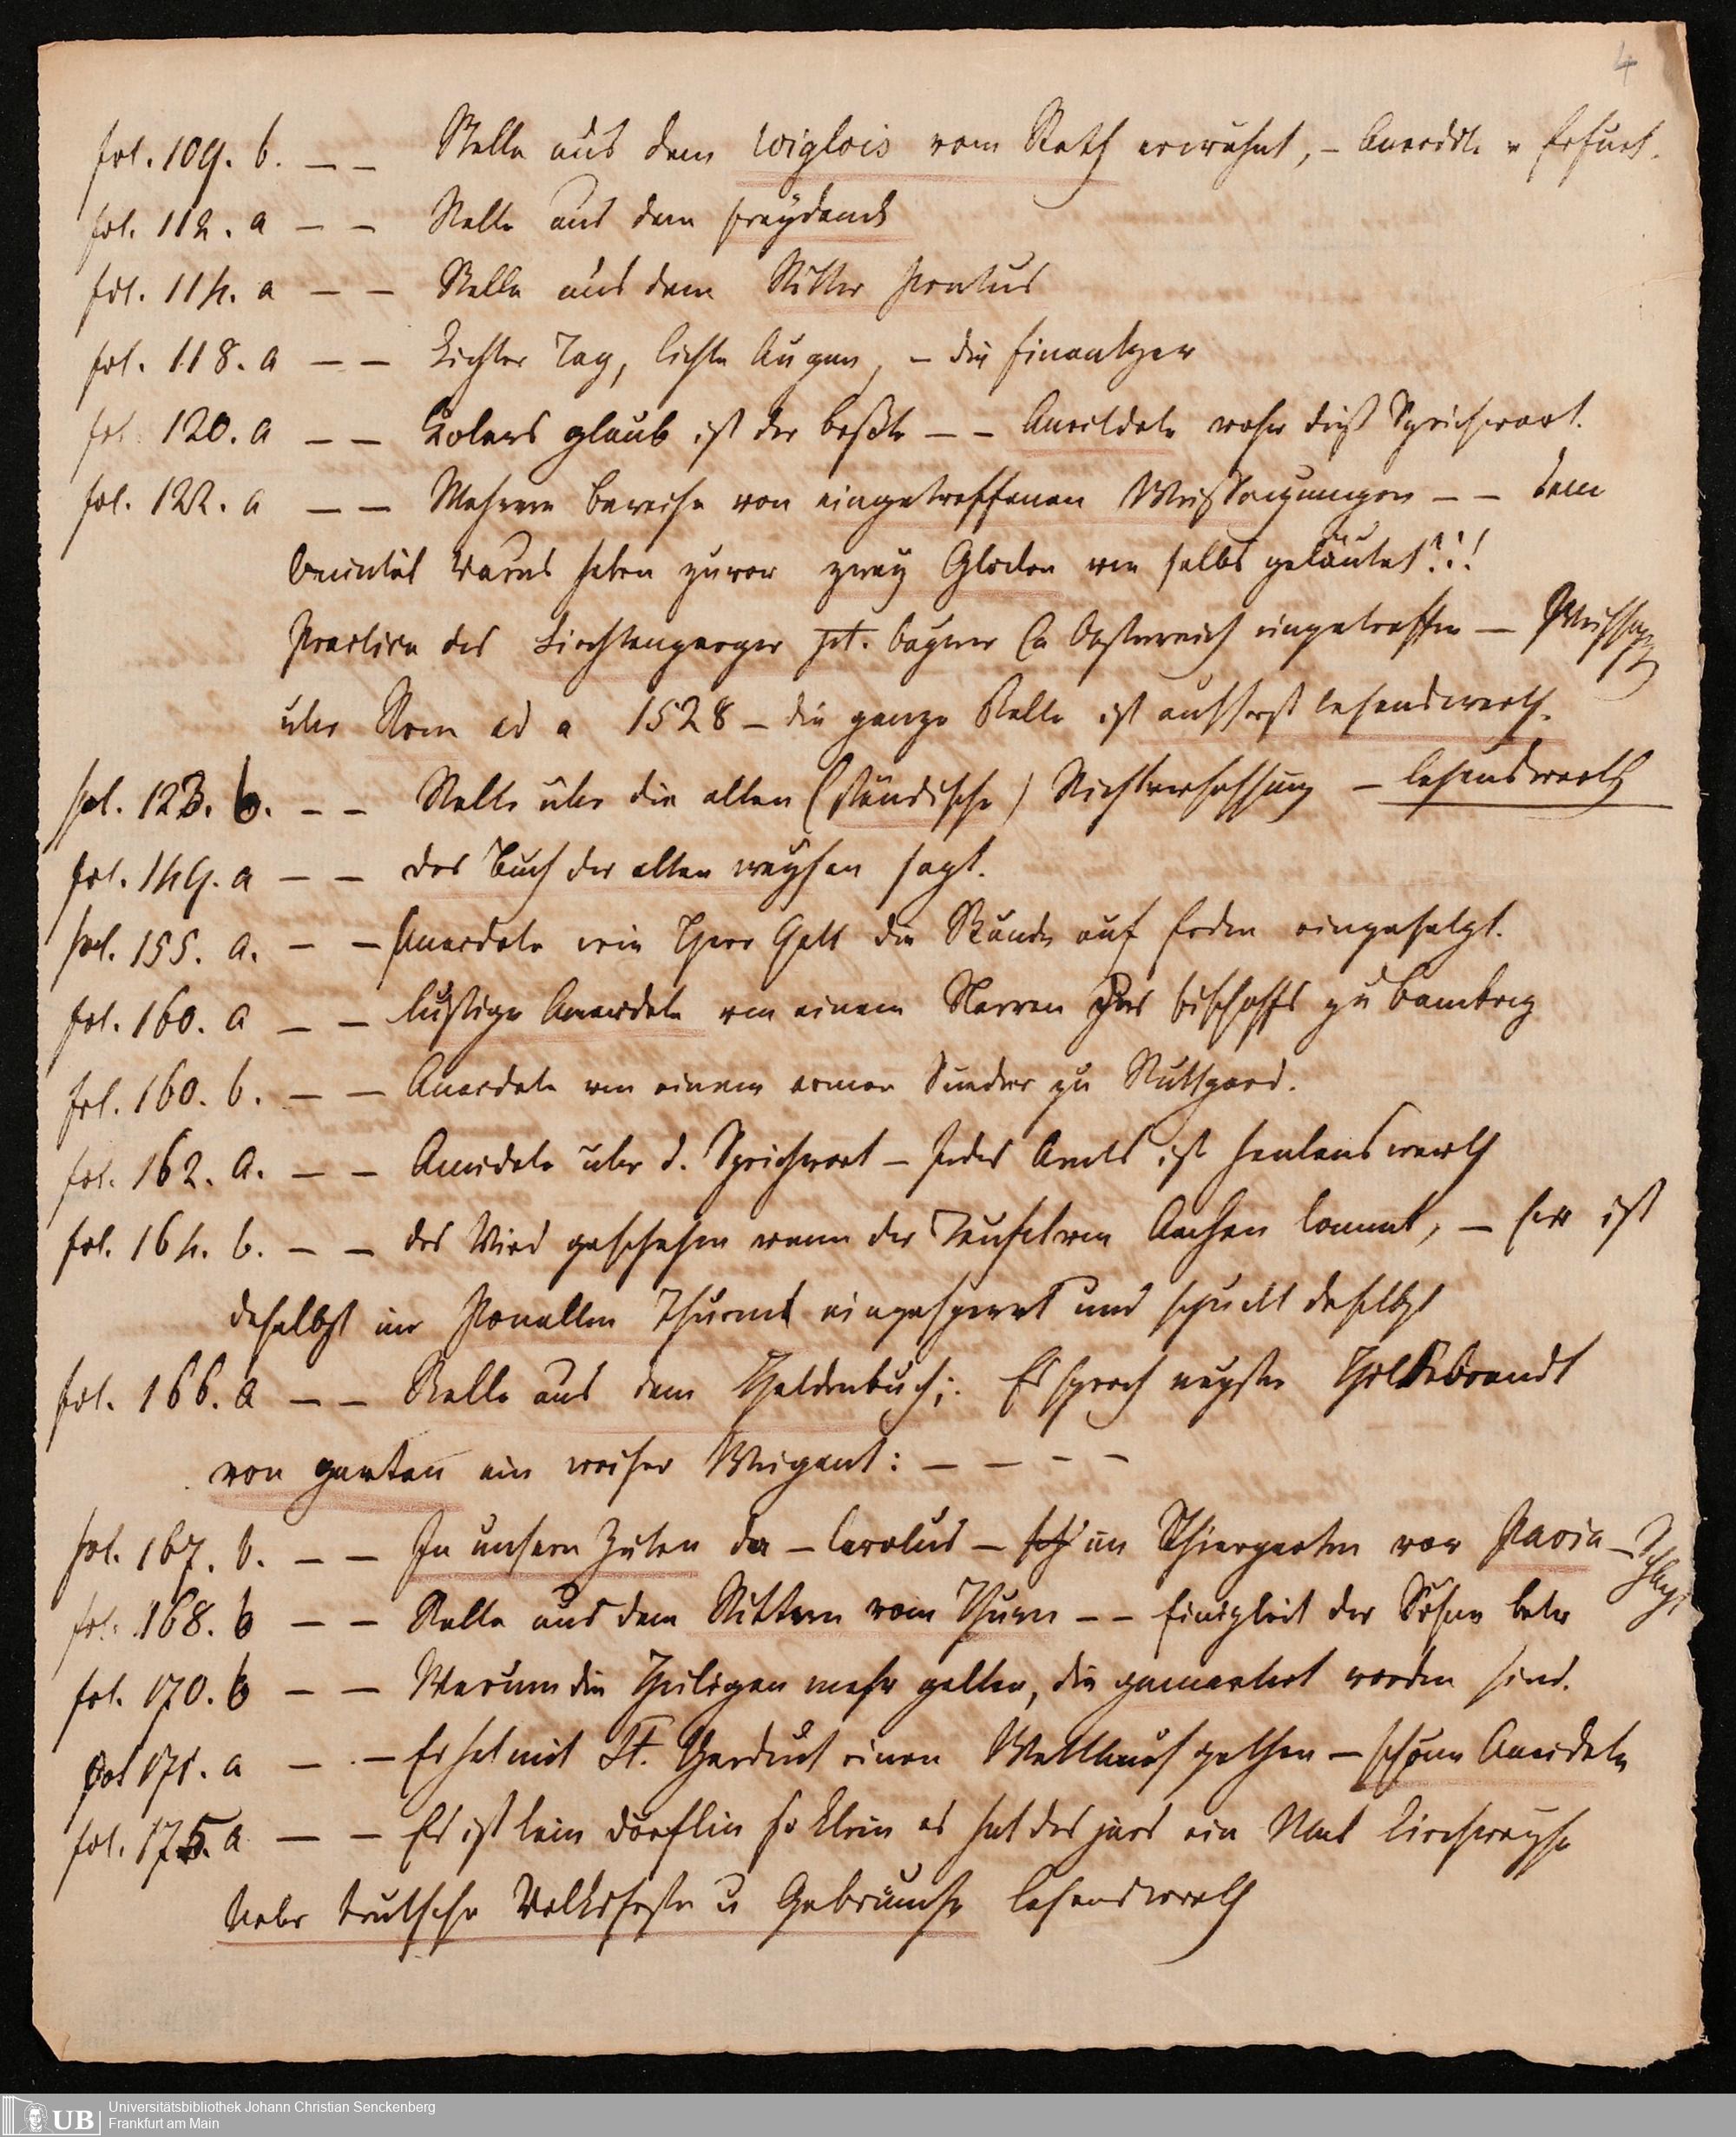 4
fol. 109. b. — — Stelle aus dem Wiglois vom Rath erwähnt, — Anecdote v Erfurt.
fol. 112. a — — Stelle aus dem freydanck
fol. 114. a — — Stelle aus dem Ritter Pontus
fol. 118. a — — Lichter Tag, lichte Augen, — die finantzer
fol. 120. a — — Kolers glaub ist der beste — — Anecdote woher dieß Sprichwort.
fol. 122. a — — Mehrere Beweise von eingetroffenen Weissagungen — — dem
haben zuvor zwey Glocken von selbs geläutet?!!
Practica des Liechtenperger in Oesterreich eingetroffen — Weissagg
über Rom ad a 1528 — die ganze Stelle ist äusserst lesenswerth.
fol. 123. b. — — Stelle über die alten (ständische) Reichsverfassung — lesenswerth
fol. 149. a — — das Buch der alten weysen sagt.
fol. 155. a. — — Anecdote wie Herr Gott die Stände auf Erden eingesetzt.
fol. 160. a — — lustige Anecdote von einem Narren des bischoffs zu Bamberg
fol. 160. b. — — Anecdote von einem armen Sunder zu Stuttgard.
fol. 162. a. — — Anecdote über d. Sprichwort — Jedes Amts ist henkens werth
fol. 164. b. — — das Wird geschehen wenn der Teufel von Aachen kommt, — Er ist
daselbst im Ponellen Thurm eingesperrt und spuckt daselbst
fol. 166. a — — Stelle aus dem Heldenbuch;. Es sprach meyster Hildebrandt
von garten ein weiser Weigant: — — — —
fol. 167. b. — — In unsern Zeiten da — Carolus — im Thiergarten vor Pavia —
fol. 168. b — — Stelle aus dem Rittern vom Thurn — — Einigkeit der Söhne
fol. 170. b — — Warum die Heiligen mehr gelten, die gemartert worden sind.
fol 171. a — — Er hat mit St. Gerdrut einen Wettlauf gethan — schöne Anecdote
fol. 175. a — — Es ist kein dörflin so klein es hat des jars ein Mal kirchweyhe
Ueber teutsche Volksfeste u Gebräuche lesenswerth
Universitätsbibliothek Johann Christian Senckenberg
Frankfurt am Main
UB